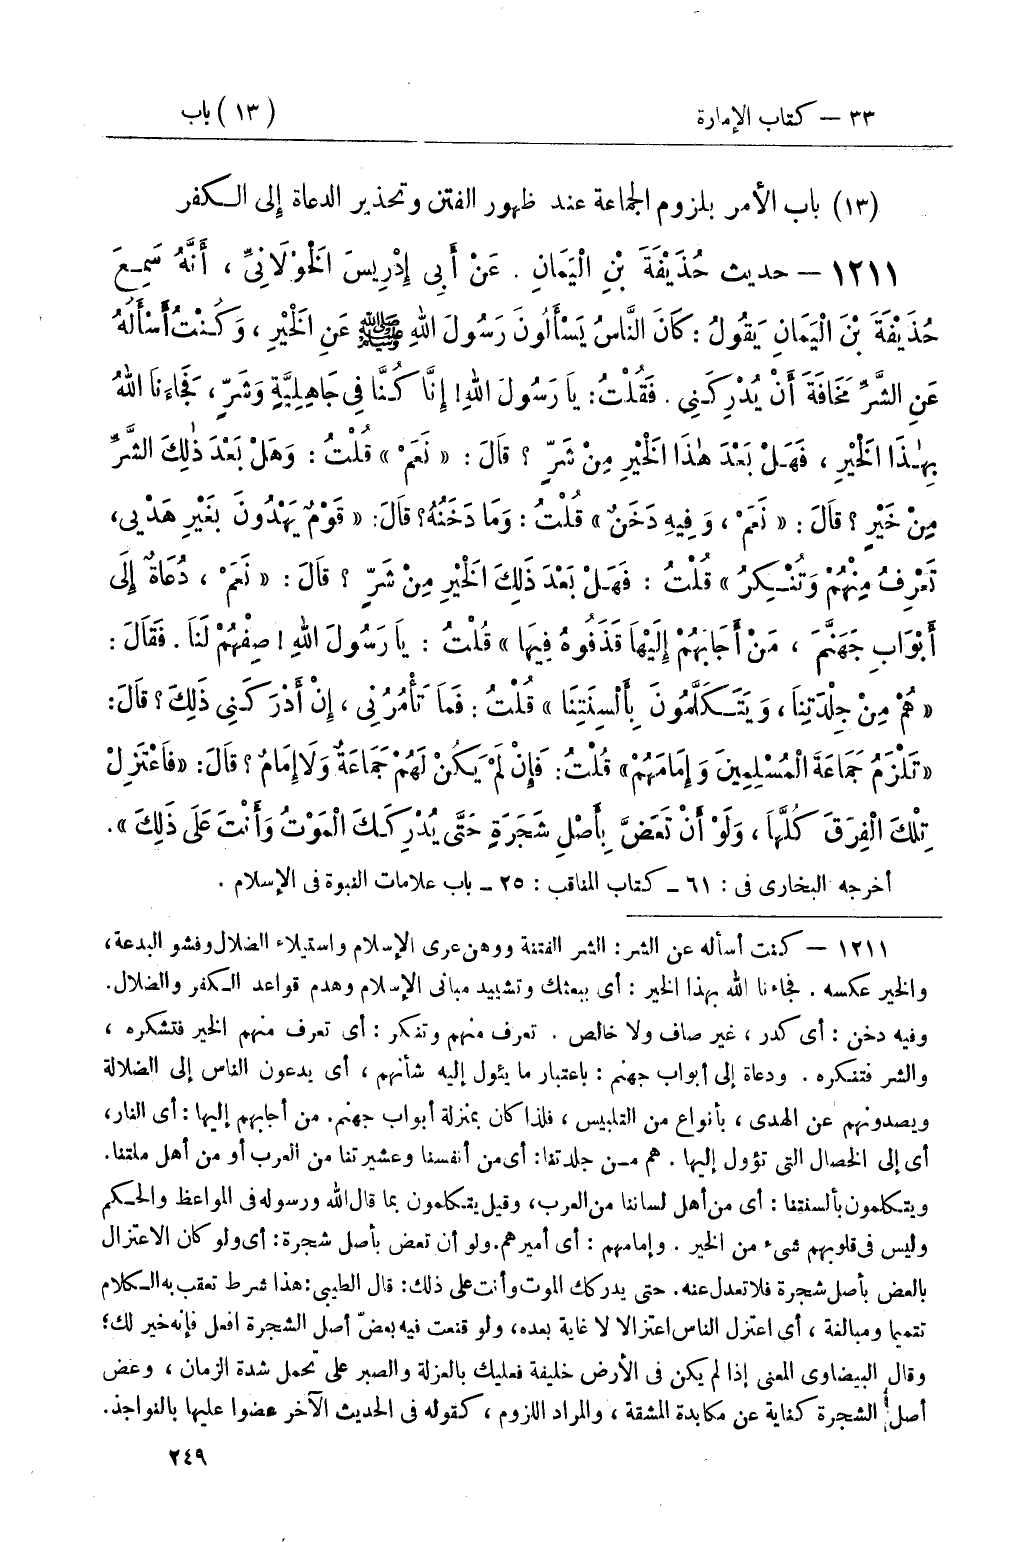 ٣٣ – كتاب الإمارة
(١٣) باب
(١٣) باب الأمر بلزوم الجماعة عند ظهور الفتن وتحذير الدعاة إلى الكفر
١٢١١ – حديث حُذَيْفَةَ بْنِ الْيَمَانِ . عَنْ أَبِي إِدْرِيسَ الْخَوْلَانِيِّ ، أَنَّهُ سَمِعَ
حُذَيْفَةَ بْنَ الْيَمَانِ يَقُولُ : كَانَ النَّاسُ يَسْأَلُونَ رَسُولَ اللهِ ﷺ عَنِ الْخَيْرِ ، وَكُنْتُ أَسْأَلُهُ
عَنِ الشَّرِّ مَخَافَةَ أَنْ يُدْرِكَنِي . فَقُلْتُ : يَا رَسُولَ اللهِ! إِنَّا كُنَّا فِي جَاهِلِيَّةٍ وَشَرٍّ ، فَجَاءَنَا اللهُ
بِهٰذَا الْخَيْرِ ، فَهَلْ بَعْدَ هٰذَا الْخَيْرِ مِنْ شَرٍّ ؟ قَالَ : « نَعَمْ » قُلْتُ : وَهَلْ بَعْدَ ذٰلِكَ الشَّرِّ
مِنْ خَيْرٍ ؟ قَالَ : « نَعَمْ ، وَفِيهِ دَخَنٌ » قُلْتُ : وَمَا دَخَنُهُ؟ قَالَ: « قَوْمٌ يَهْدُونَ بِغَيْرِ هَدْيِي ،
تَعْرِفُ مِنْهُمْ وَتُنْكِرُ » قُلْتُ : فَهَلْ بَعْدَ ذَلِكَ الْخَيْرِ مِنْ شَرٍّ ؟ قَالَ : « نَعَمْ ، دُعَاةٌ إِلَى
أَبْوَابِ جَهَنَّمَ ، مَنْ أَجَابَهُمْ إِلَيْهَا قَذَفُوهُ فِيهَا » قُلْتُ : يَا رَسُولَ اللهِ ! صِفْهُمْ لَنَا . فَقَالَ :
« هُمْ مِنْ جِلْدَتِنَا ، وَيَتَكَلَّمُونَ بِأَلْسِنَتِنَا » قُلْتُ : فَمَا تَأْمُرُنِي ، إِنْ أَدْرَكَنِي ذَلِكَ ؟ قَالَ:
« تَلْزَمُ جَمَاعَةَ الْمُسْلِمِينَ وَإِمَامَهُمْ» قُلْتُ: فَإِنْ لَمْ يَكُنْ لَهُمْ جَمَاعَةٌ وَلَا إِمَامٌ ؟ قَالَ: «فَاعْتَزِلْ
تِلْكَ الْفِرَقَ كُلَّهَا ، وَلَوْ أَنْ تَعَضَّ بِأَصْلِ شَجَرَةٍ حَتَّى يُدْرِكَكَ الْمَوْتُ وَأَنْتَ عَلَى ذَلِكَ ».
أخرجه البخارى فى : ٦١ – كتاب المناقب : ٢٥ – باب علامات النبوة فى الإسلام .
١٢١١ – كنت أسأله عن الشر : الشر الفتنة ووهن عرى الإسلام واستيلاء الضلال وفشو البدعة ،
والخير عكسه . فجاءنا الله بهذا الخير : أى ببعثك وتشييد مبانى الإسلام وهدم قواعد الكفر والضلال.
وفيه دخن : أى كدر ، غير صاف ولا خالص . تعرف منهم وتنكر : أى تعرف منهم الخير فتشكره ،
والشر فتنكره . ودعاة إلى أبواب جهنم : باعتبار ما يئول إليه شأنهم ، أى يدعون الناس إلى الضلالة
ويصدونهم عن الهدى ، بأنواع من التلبيس ، فلذا كان بمنزلة أبواب جهنم. من أجابهم إليها : أى النار،
أى إلى الخصال التى تؤول إليها . هم من جلدتنا: أى من أنفسنا وعشيرتنا من العرب أو من أهل ملتنا.
ويتكلمون بألسنتنا : أى من أهل لساننا من العرب، وقيل يتكلمون بما قال الله ورسوله فى المواعظ والحكم
وليس فى قلوبهم شىء من الخير . وإمامهم : أى أميرهم. ولو أن تعض بأصل شجرة : أى ولو كان الاعتزال
بالعض بأصل شجرة فلا تعدل عنه. حتى يدركك الموت وأنت على ذلك : قال الطيبى : هذا شرط تعقب به الكلام
تتميما ومبالغة ، أى اعتزل الناس اعتزالا لا غاية بعده، ولو قنعت فيه بعضّ أصل الشجرة افعل فإنه خير لك؛
وقال البيضاوى المعنى إذا لم يكن فى الأرض خليفة فعليك بالعزلة والصبر على تحمل شدة الزمان ، وعض
أصل الشجرة كناية عن مكابدة المشقة ، والمراد اللزوم ، كقوله فى الحديث الآخر عضوا عليها بالنواجذ.
٢٤٩